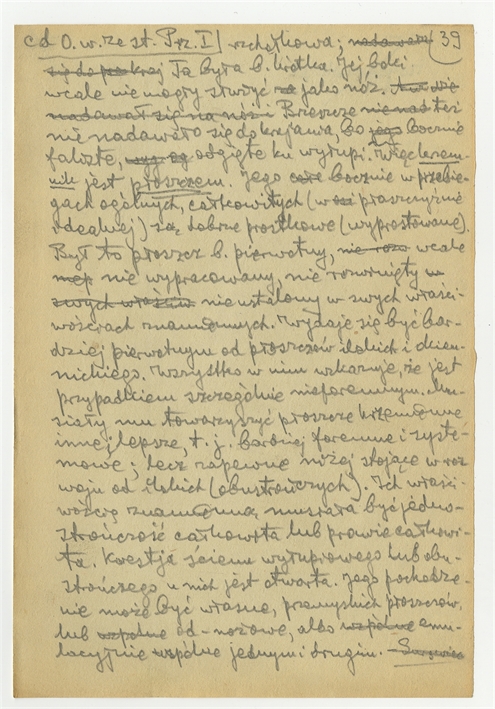 cd O. w. ze st. Prz. I rzchotkowa; 39
kraj Ta była b. krótka. Jej boki
wcale nie mogły stworzyć jako nóż.
Pierwsze też
nie nadawało się do krajania, bo bocznie
faliste, odgięte ku wyłupi. Więc krzem-
nik jest płoszczem. Jego bocznie w przebie-
gach ogólnych, całkowitych (w osi płaszczyźnie
idealnej) są dobrze prostkowe (wyprostowane).
Był to płoszcz b. pierwotny, wcale
nie wypracowany, nie rozwinięty w
nie ustalony w swych właści-
wościach znamiennych. Wydaje się być bar-
dziej pierwotnym od płoszczów ilskich i dzien-
nickiego. Wszystko w nim wskazuje, że jest
przypadkiem szczególnie nieforemnym. Mu-
siały mu towarzyszyć płoszcze krzemienne
inne, lepsze, t. j. bardziej foremne i syste-
mowe; lecz zapewne niżej stojące w roz
woju od ilskich (obustrończych). Ich właści-
wością znamienną musiała być jedno-
strończość całkowita lub prawie całkowi-
ta. Kwestja ścieru wyłupowego lub obu-
strończego u nich jest otwarta. Jego pochodze-
nie może być własne, przemyskich płoszczów,
lub od-nożowe, albo emu-
lacyjnie wspólne jednym i drugim.